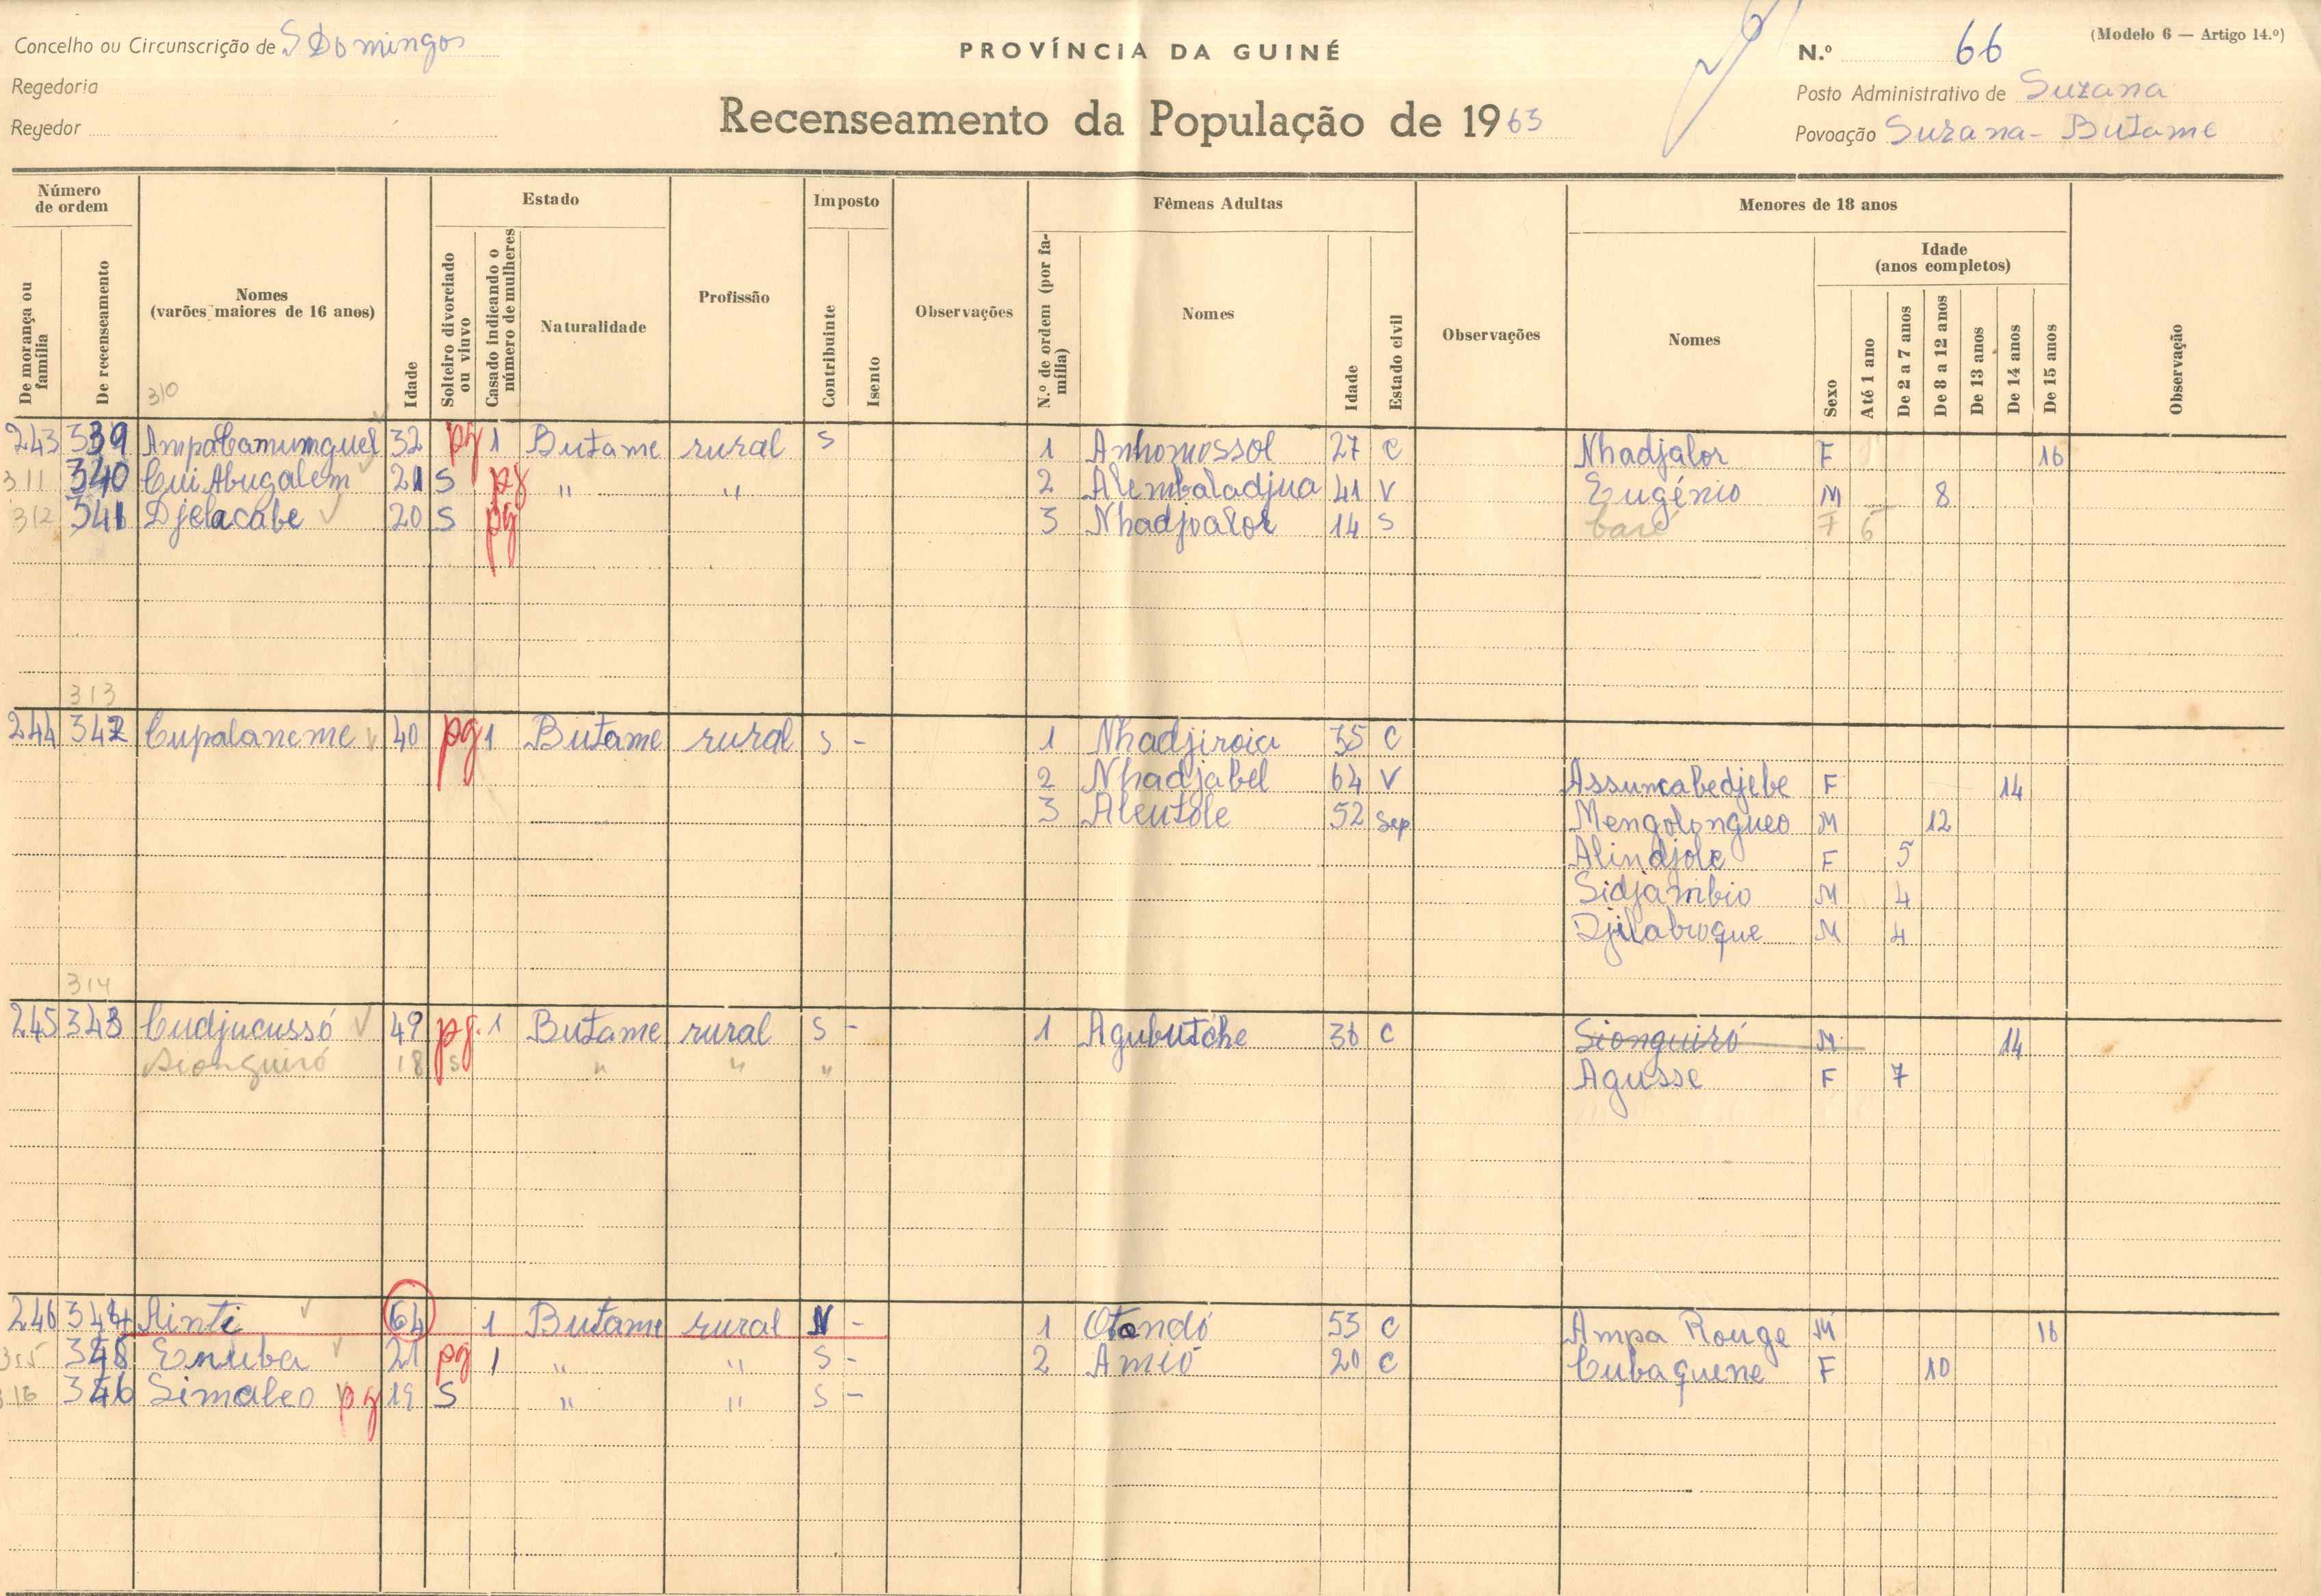 Concelho ou Circunscrição de S Domingos
PROVÍNCIA DA GUINÉ
N.º 66
(Modelo 6 — Artigo 14.º)
Regedoria
Posto Administrativo de Suzana
Regedor
Recenseamento da População de 1963
Povoação Suzana - Butame
Número de ordem
Estado
Imposto
Fêmeas Adultas
Menores de 18 anos
De morança ou família
De recenseamento
Nomes (varões maiores de 16 anos)
Idade
Solteiro divorciado ou viuvo
Casado indicando o número de mulheres
Naturalidade
Profissão
Contribuinte
Isento
Observações
N.º de ordem (por família)
Nomes
Idade
Estado civil
Observações
Nomes
Sexo
Idade (anos completos)
Até 1 ano
De 2 a 7 anos
De 8 a 12 anos
De 13 anos
De 14 anos
De 15 anos
Observação
310
243 339 Ampabamumguel 32 pg 1 Butame rural S 1 Anhomossol 27 C Nhadjalor F 16
311 340 Cui Abugalem 21 S pg " " 2 Alembaladjua 41 V Eugénio M 8
312 341 Djelacabe 20 S pg 3 Nhadjvalor 14 S baré F 6
313
244 342 Cupalaneme 40 pg 1 Butame rural S - 1 Nhadjiroia 35 C
2 Nhadjabel 64 V Assuncabedjebe F 14
3 Aleutole 52 Sep Mengolongueo M 12
Alindjole F 5
Sidjambio M 4
Djilabroque M 4
314
245 343 Cudjucussó 49 pg. 1 Butame rural S - 1 Agubutche 36 C Sionguiró M 14
Sionguiró 18 S " " " Agusse F 7
246 344 Ainti 64 1 Butame rural N - 1 Otondó 53 C Ampa Rouge M 16
315 345 Enuba 21 pg 1 " " S - 2 Amió 20 C Cubaquene F 10
316 346 Simaleo pg 19 S " " S -